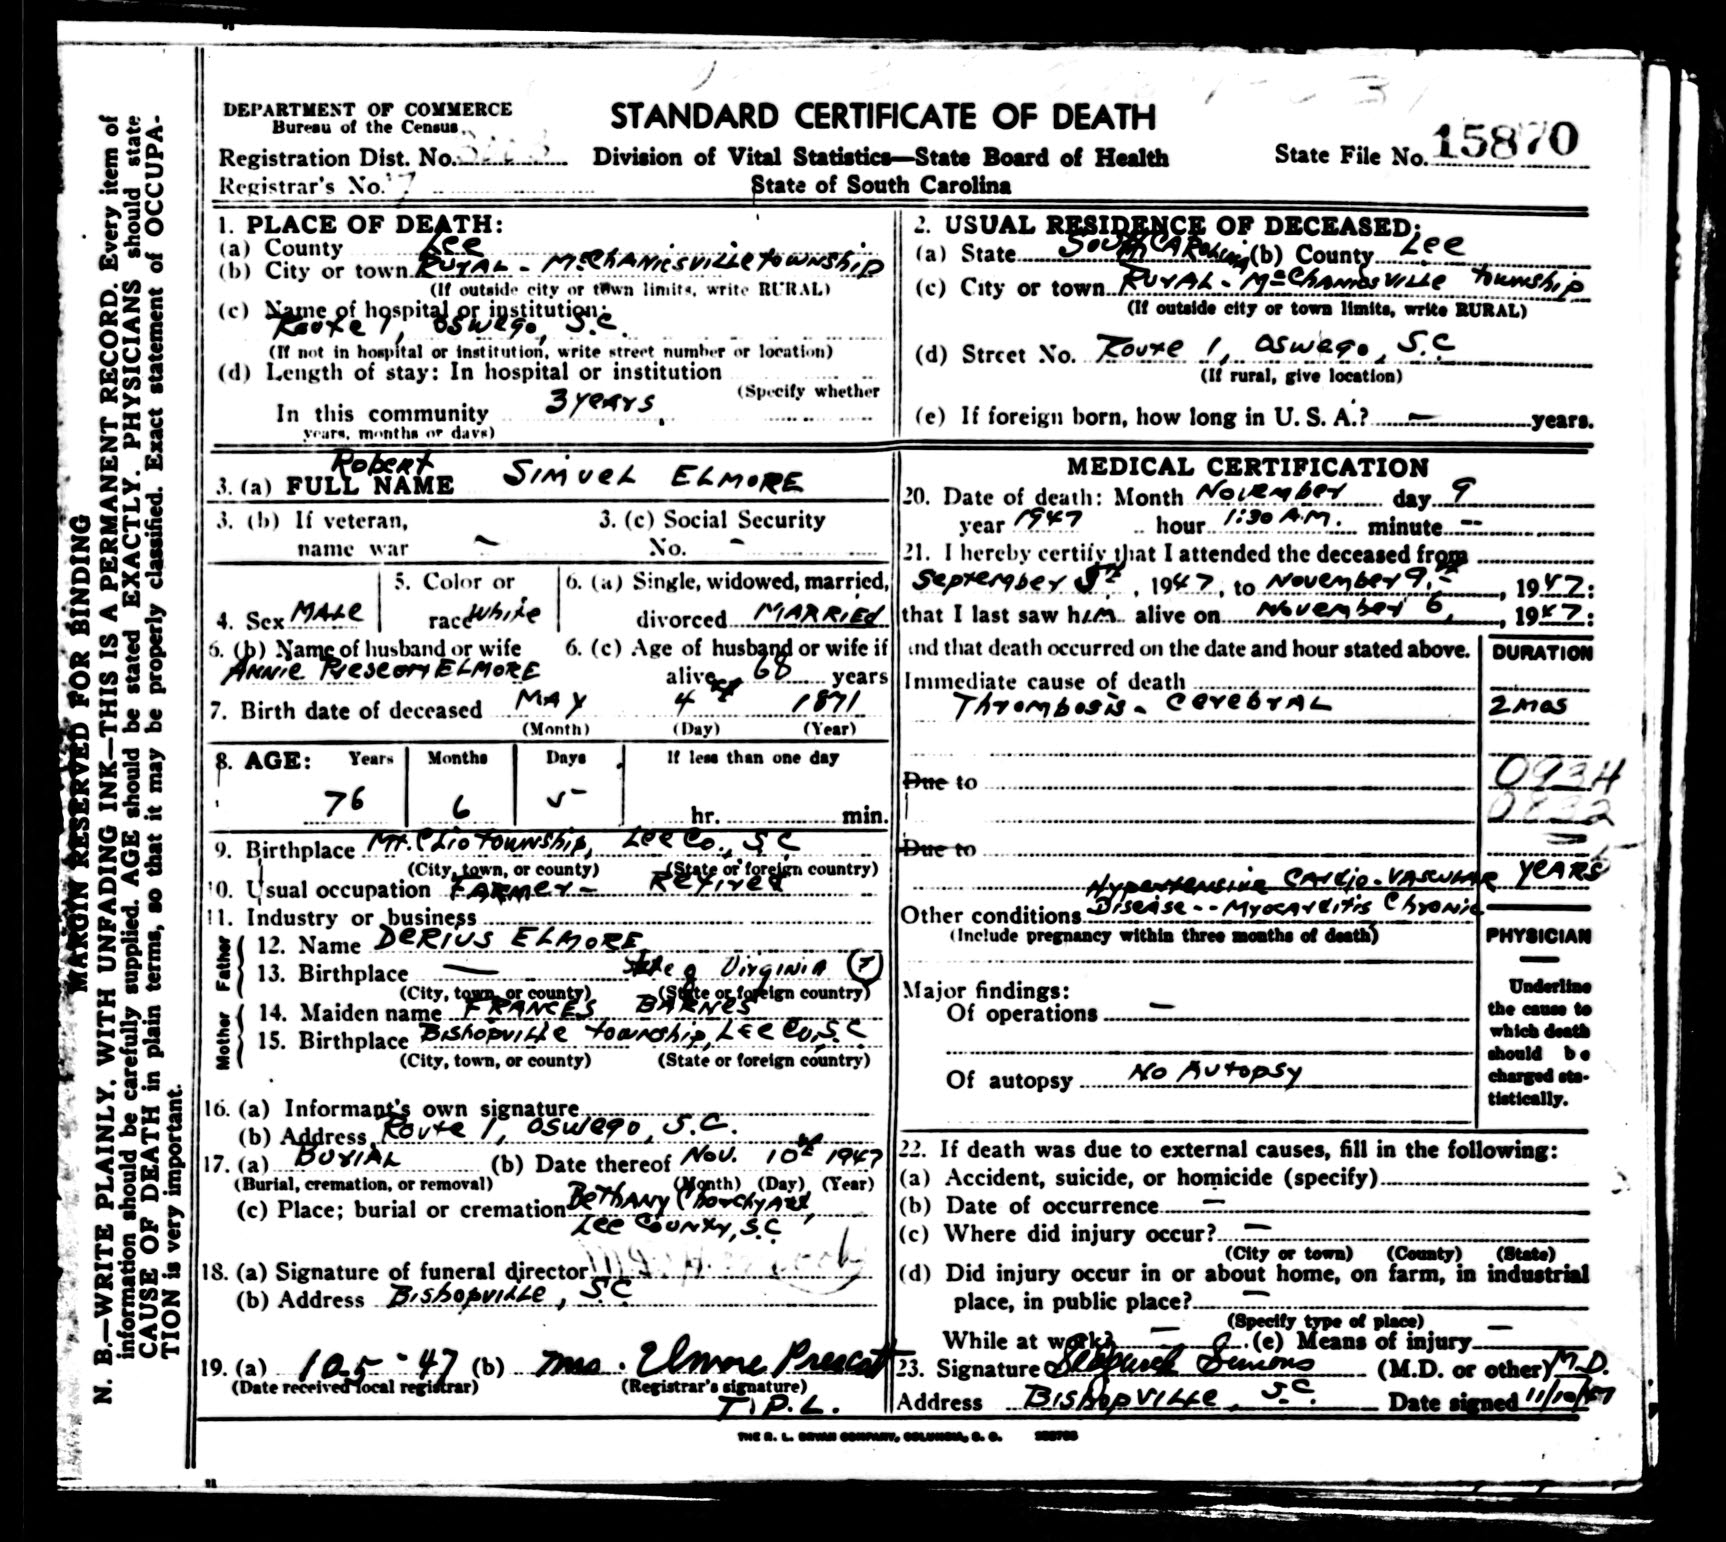 DEPARTMENT OF COMMERCE
Bureau of the Census
STANDARD CERTIFICATE OF DEATH
Registration Dist. No.
Division of Vital Statistics—State Board of Health
State File No. 15870
Registrar's No. 7
State of South Carolina
1. PLACE OF DEATH:
(a) County Lee
(b) City or town RURAL - McChanicsville township
(If outside city or town limits, write RURAL)
(c) Name of hospital or institution:
Route 1, Oswego, S.C.
(If not in hospital or institution, write street number or location)
(d) Length of stay: In hospital or institution
(Specify whether
In this community 3 years
years, months or days)
2. USUAL RESIDENCE OF DECEASED:
(a) State South Carolina (b) County Lee
(c) City or town RURAL - McChanicsville township
(If outside city or town limits, write RURAL)
(d) Street No. Route 1, Oswego, S.C
(If rural, give location)
(e) If foreign born, how long in U. S. A.? — years.
3. (a) FULL NAME Robert Simuel Elmore
3. (b) If veteran, 3. (c) Social Security
name war - No. -
4. Sex Male
5. Color or
race White
6. (a) Single, widowed, married,
divorced MARRIED
6. (b) Name of husband or wife 6. (c) Age of husband or wife if
Annie Prescott Elmore alive 68 years
7. Birth date of deceased May 4th 1871
(Month) (Day) (Year)
8. AGE: Years Months Days If less than one day
76 6 5 hr. min.
9. Birthplace Mt. Clio township, Lee Co., S.C
(City, town, or county) (State or foreign country)
10. Usual occupation Farmer - Retired
11. Industry or business
Father
12. Name Derius Elmore
13. Birthplace — State of Virginia (?)
(City, town, or county) (State or foreign country)
Mother
14. Maiden name Frances Barnes
15. Birthplace Bishopville township, Lee Co, S.C
(City, town, or county) (State or foreign country)
16. (a) Informant's own signature
(b) Address Route 1, Oswego, S.C.
17. (a) Burial (b) Date thereof Nov. 10th 1947
(Burial, cremation, or removal) (Month) (Day) (Year)
(c) Place; burial or cremation Bethany Churchyard,
Lee County, S.C
18. (a) Signature of funeral director
(b) Address Bishopville, S.C
19. (a) 10-5-47 (b) Mrs. Elmore Prescott
(Date received local registrar) (Registrar's signature)
T.P.L.
MEDICAL CERTIFICATION
20. Date of death: Month November day 9
year 1947 hour 1:30 A.M. minute --
21. I hereby certify that I attended the deceased from
September , 1947, to November 9, 1947:
that I last saw him alive on November 6, 1947:
and that death occurred on the date and hour stated above.
DURATION
Immediate cause of death
Thrombosis - Cerebral 2 mos
Due to 0934
0832
Due to
Hypertensive Cardio-Vascular years
Other conditions Disease -- Myocarditis Chronic
(Include pregnancy within three months of death)
Major findings:
Of operations —
Of autopsy No Autopsy
PHYSICIAN
Underline
the cause to
which death
should be
charged sta-
tistically.
22. If death was due to external causes, fill in the following:
(a) Accident, suicide, or homicide (specify)
(b) Date of occurrence —
(c) Where did injury occur? —
(City or town) (County) (State)
(d) Did injury occur in or about home, on farm, in industrial
place, in public place? —
(Specify type of place)
While at work? — (e) Means of injury —
23. Signature Simons (M.D. or other) M.D.
Address Bishopville, S.C. Date signed 11/10/47
THE R. L. BRYAN COMPANY, COLUMBIA, S. C.
MARGIN RESERVED FOR BINDING
N. B.—WRITE PLAINLY, WITH UNFADING INK—THIS IS A PERMANENT RECORD. Every item of
information should be carefully supplied. AGE should be stated EXACTLY. PHYSICIANS should state
CAUSE OF DEATH in plain terms, so that it may be properly classified. Exact statement of OCCUPA-
TION is very important.